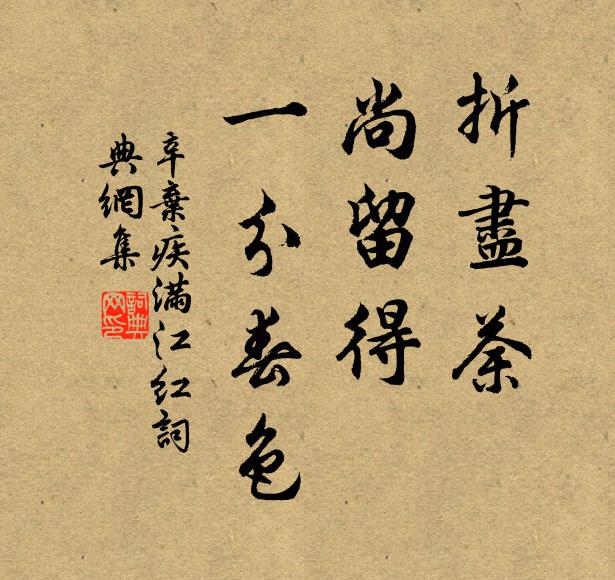 折盡荼
尚留得
一分春色
辛棄疾滿江紅詞
典網集
詞典網印